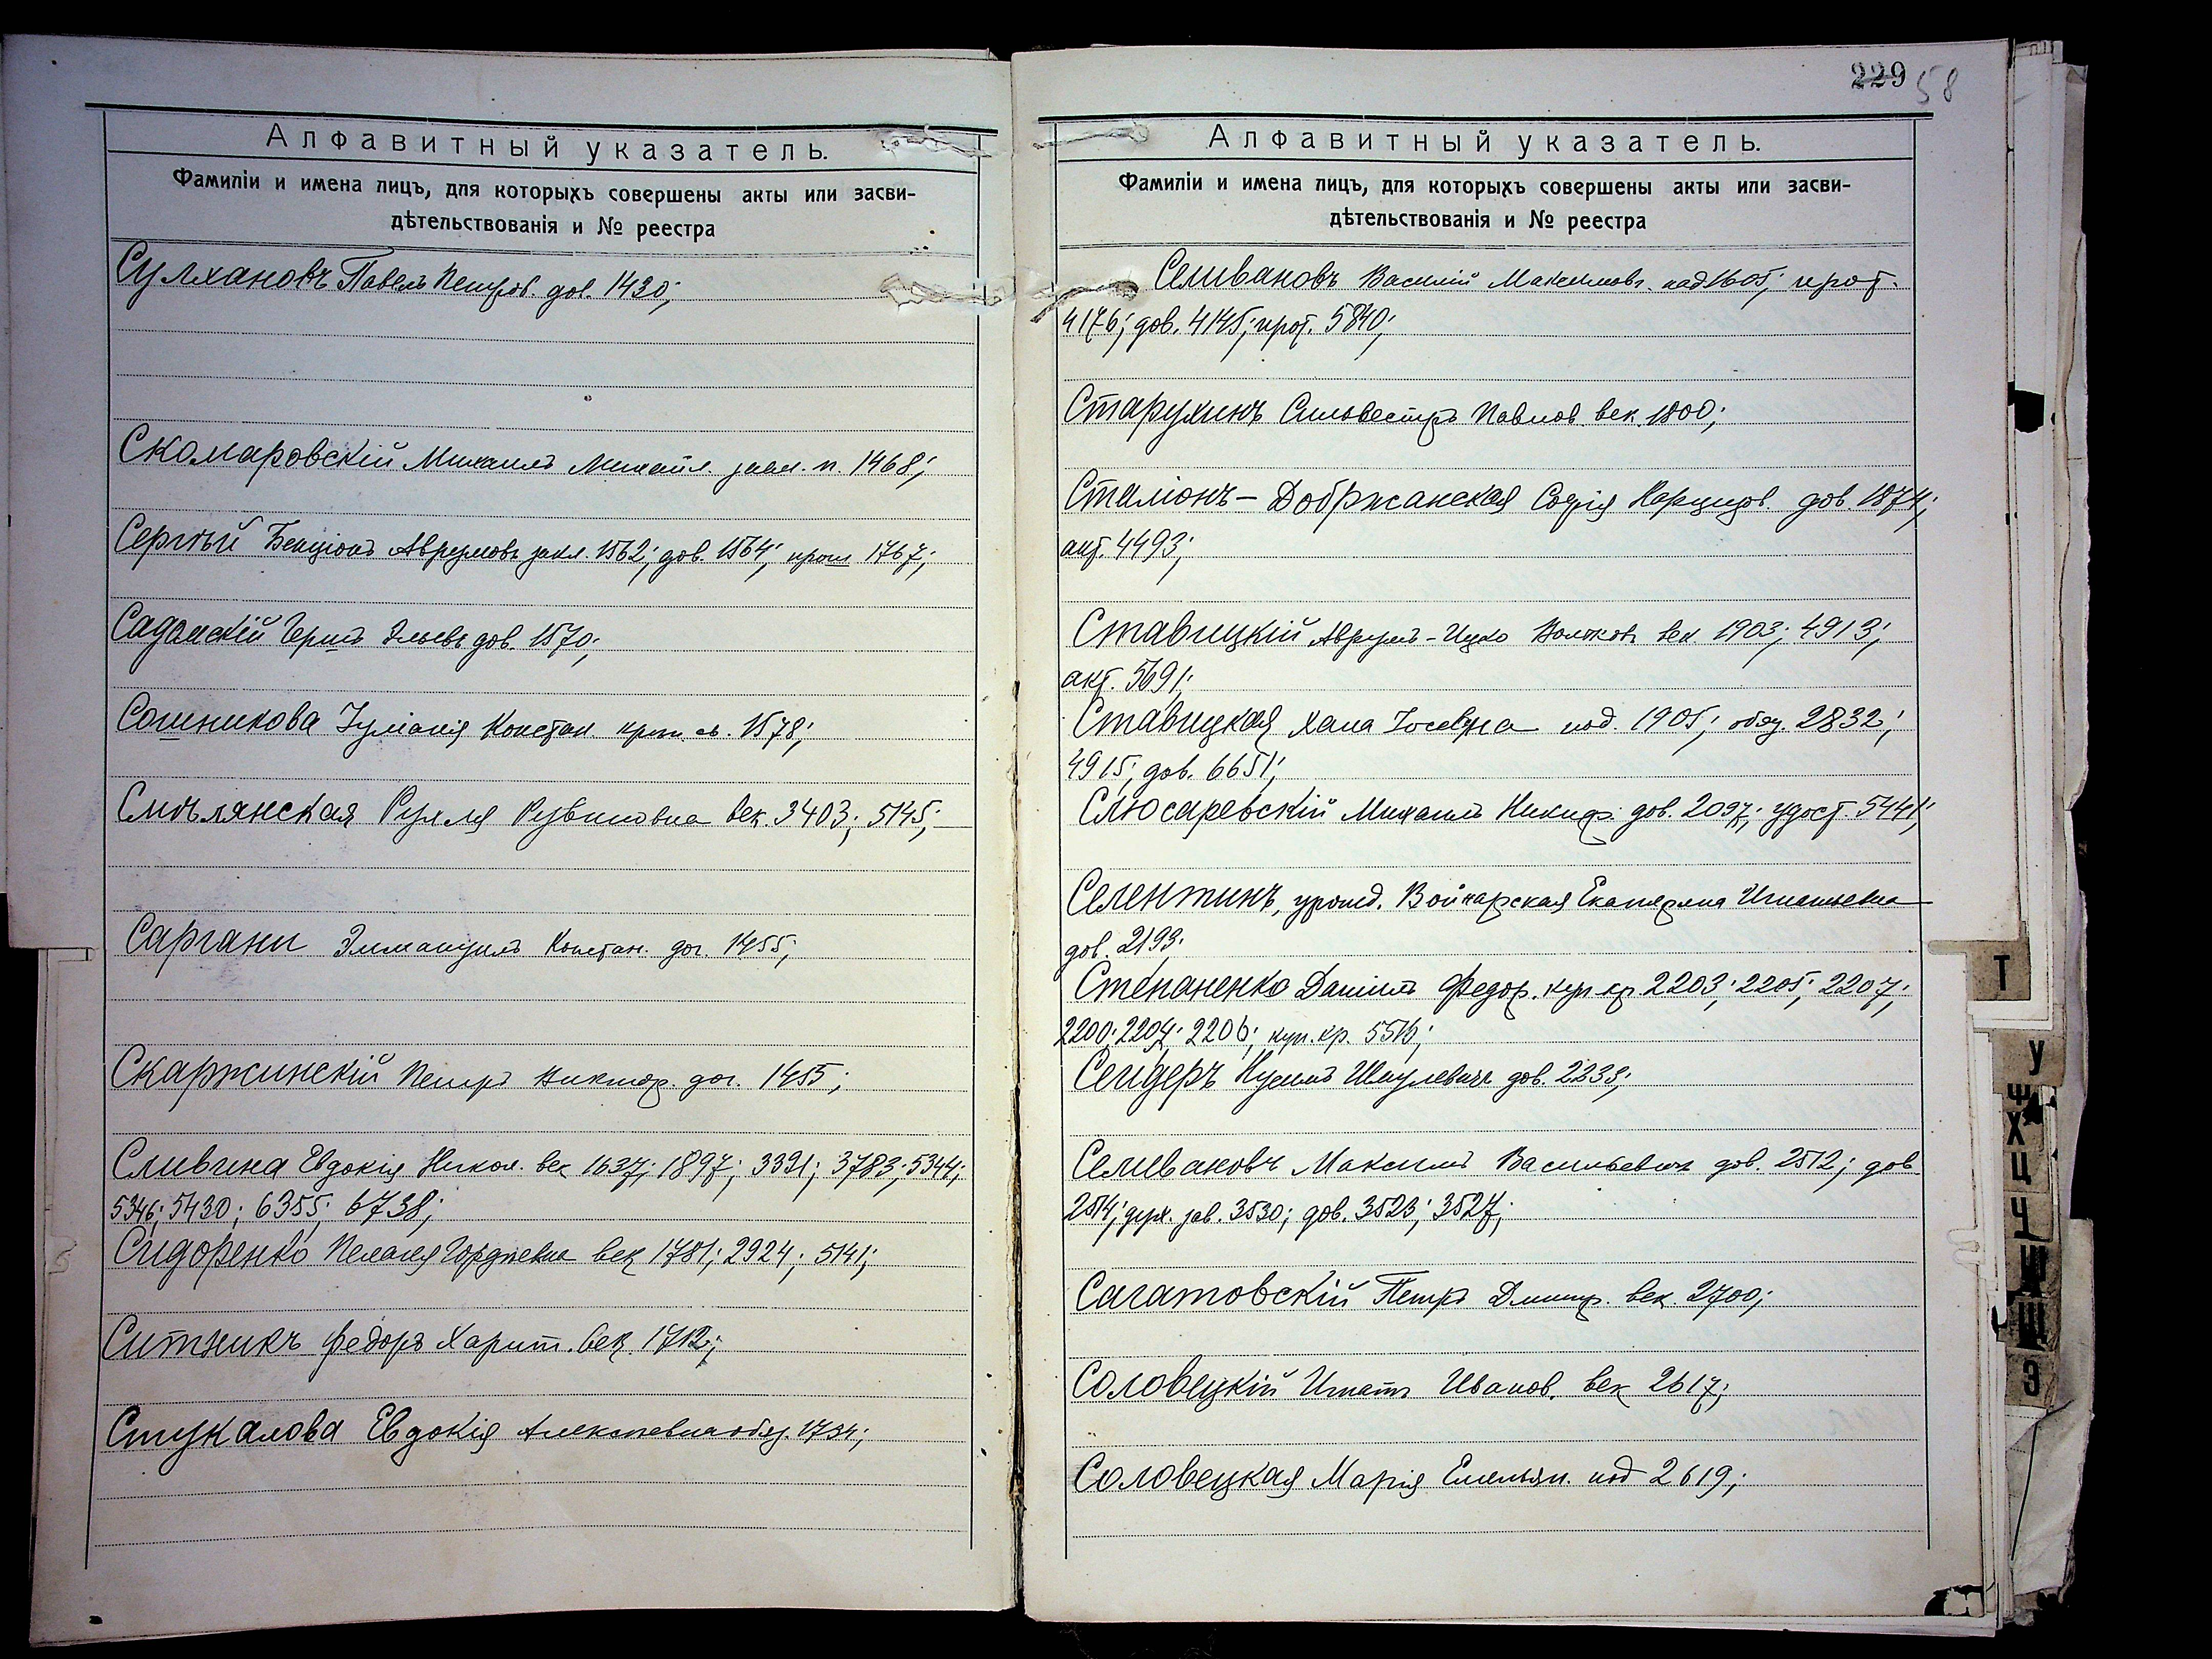 Алфавитный указатель.
Фамиліи и имена лицъ, для которыхъ совершены акты или засви-
дѣтельствованія и № реестра
Сулхановъ Павелъ Петров. дов. 1430;
Скомаровскій Михаилъ Михайл. п. 1468;
Сергѣй Бенціонъ Аврумовъ закл. 1562; дов. 1564; прот 1767;
Садомскій Гершъ Эльевъ дов. 1570;
Сошникова Іуліанія Констан. 1578;
Смѣлянская Рухля Рувиновна век. 3403; 5145;
Саргани Эммануилъ Констан. дог. 1455;
Скаржинскій Петръ Виктор. дог. 1455;
Сливина Евдокія Никол. век 1637; 1897; 3391; 3783; 5344;
5346; 5430; 6355; 6738;
Сидоренко Пелагея Гордѣевна век 1781; 2924; 5141;
Ситникъ Федоръ Харит. век 1712;
Стукалова Евдокія Алексѣевна обяз. 1734;
229 58
Алфавитный указатель.
Фамиліи и имена лицъ, для которыхъ совершены акты или засви-
дѣтельствованія и № реестра
Селивановъ Василій Максимовъ. 1605; прот.
4176; дов. 4145; прот. 5840;
Старухинъ Сильвестръ Павлов. век. 1800;
Сталіонъ-Добржанская Софія Нарцизов. дов. 1874;
акт. 4493;
Ставицкій Аврумъ-Ицко Волковъ век. 1903; 4913;
акт. 5691;
Ставицкая Хана Іосевна под. 1905; обяз. 2832;
4915; дов. 6651;
Слюсаревскій Михаилъ Никиф. дов. 2097; удост. 5441;
Селентинъ, урожд. Войнарская Екатерина Игнатьевна
дов. 2193.
Степаненко Даніилъ Федор. куп кр. 2203; 2205; 2207;
2200; 2204; 2206; куп. кр. 5516;
Сендеръ Нухимъ Шмулевичъ дов. 2338;
Селивановъ Максимъ Васильевичъ дов. 2512; дов
2514; зав. 3530; дов. 3523; 3527;
Сагатовскій Петръ Дмитр. век. 2700;
Соловецкій Игнатъ Иванов. век 2617;
Соловецкая Марія Емельян. под 2619;
Т
У
Ф
Х
Ц
Ч
Ш
Щ
Э